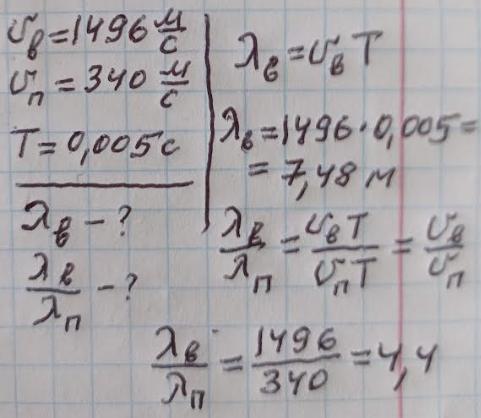 υв = 1496 м/с
υп = 340 м/с
T = 0,005 с
λв – ?
λв/λп – ?
λв = υв T
λв = 1496 · 0,005 =
= 7,48 м
λв/λп = υв T/υп T = υв/υп
λв/λп = 1496/340 = 4,4